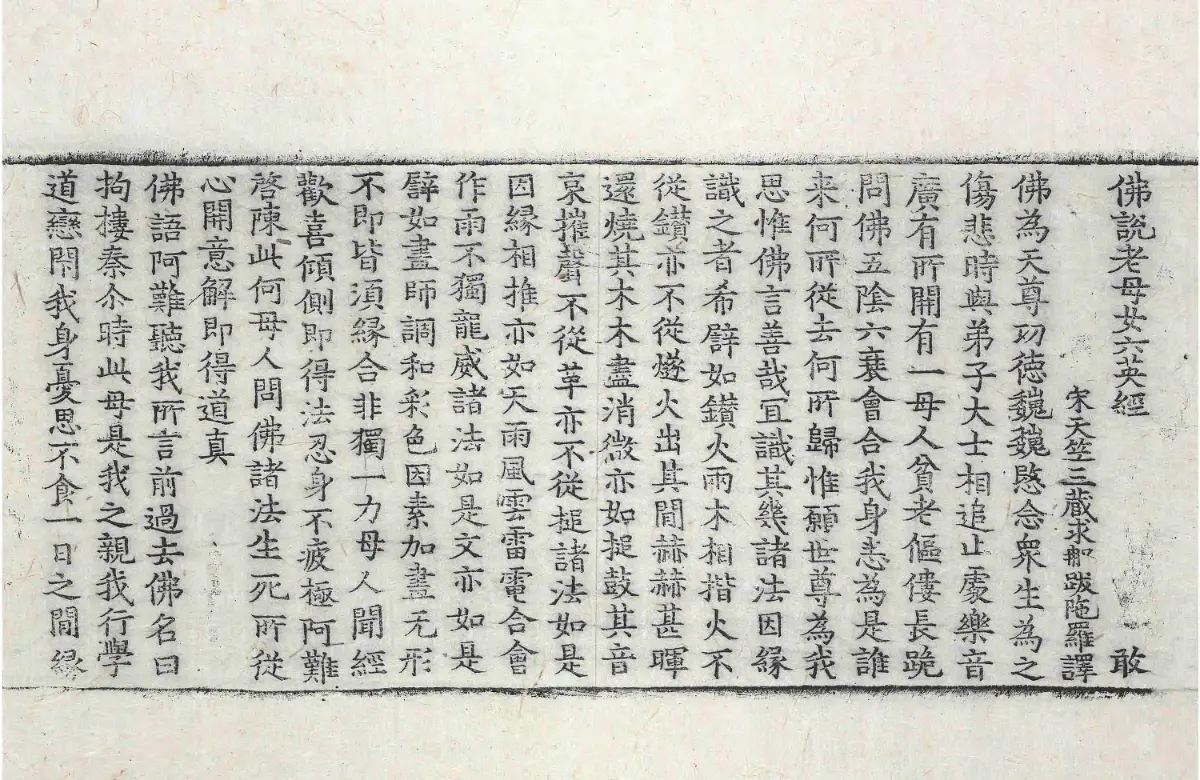 佛說老母女六英經 敢
宋天竺三藏求那跋陁羅譯
佛為天尊功德巍巍愍念衆生為之
傷悲時與弟子大士相追止處樂音
廣有所開有一母人貧老傴僂長跪
問佛五陰六衰會合我身恚為是誰
来何所從去何所歸惟願世尊為我
思惟佛言善哉冝識其幾諸法因緣
識之者希辟如鑚火兩木相揩火不
從鑚亦不從燧火出其間赫赫甚暉
還燒其木木盡消微亦如搥鼓其音
哀摧聲不從革亦不從搥諸法如是
因緣相推亦如天雨風雲雷電合會
作雨不獨龍威諸法如是文亦如是
辟如畫師調和彩色因素加畫无形
不即皆須緣合非獨一力母人聞經
歡喜傾側即得法忍身不疲極阿難
啓陳此何母人問佛諸法生死所從
心開意解即得道真
佛語阿難聽我所言前過去佛名曰
拘樓秦尒時此母是我之親我行學
道戀閇我身憂思不食一日之間緣